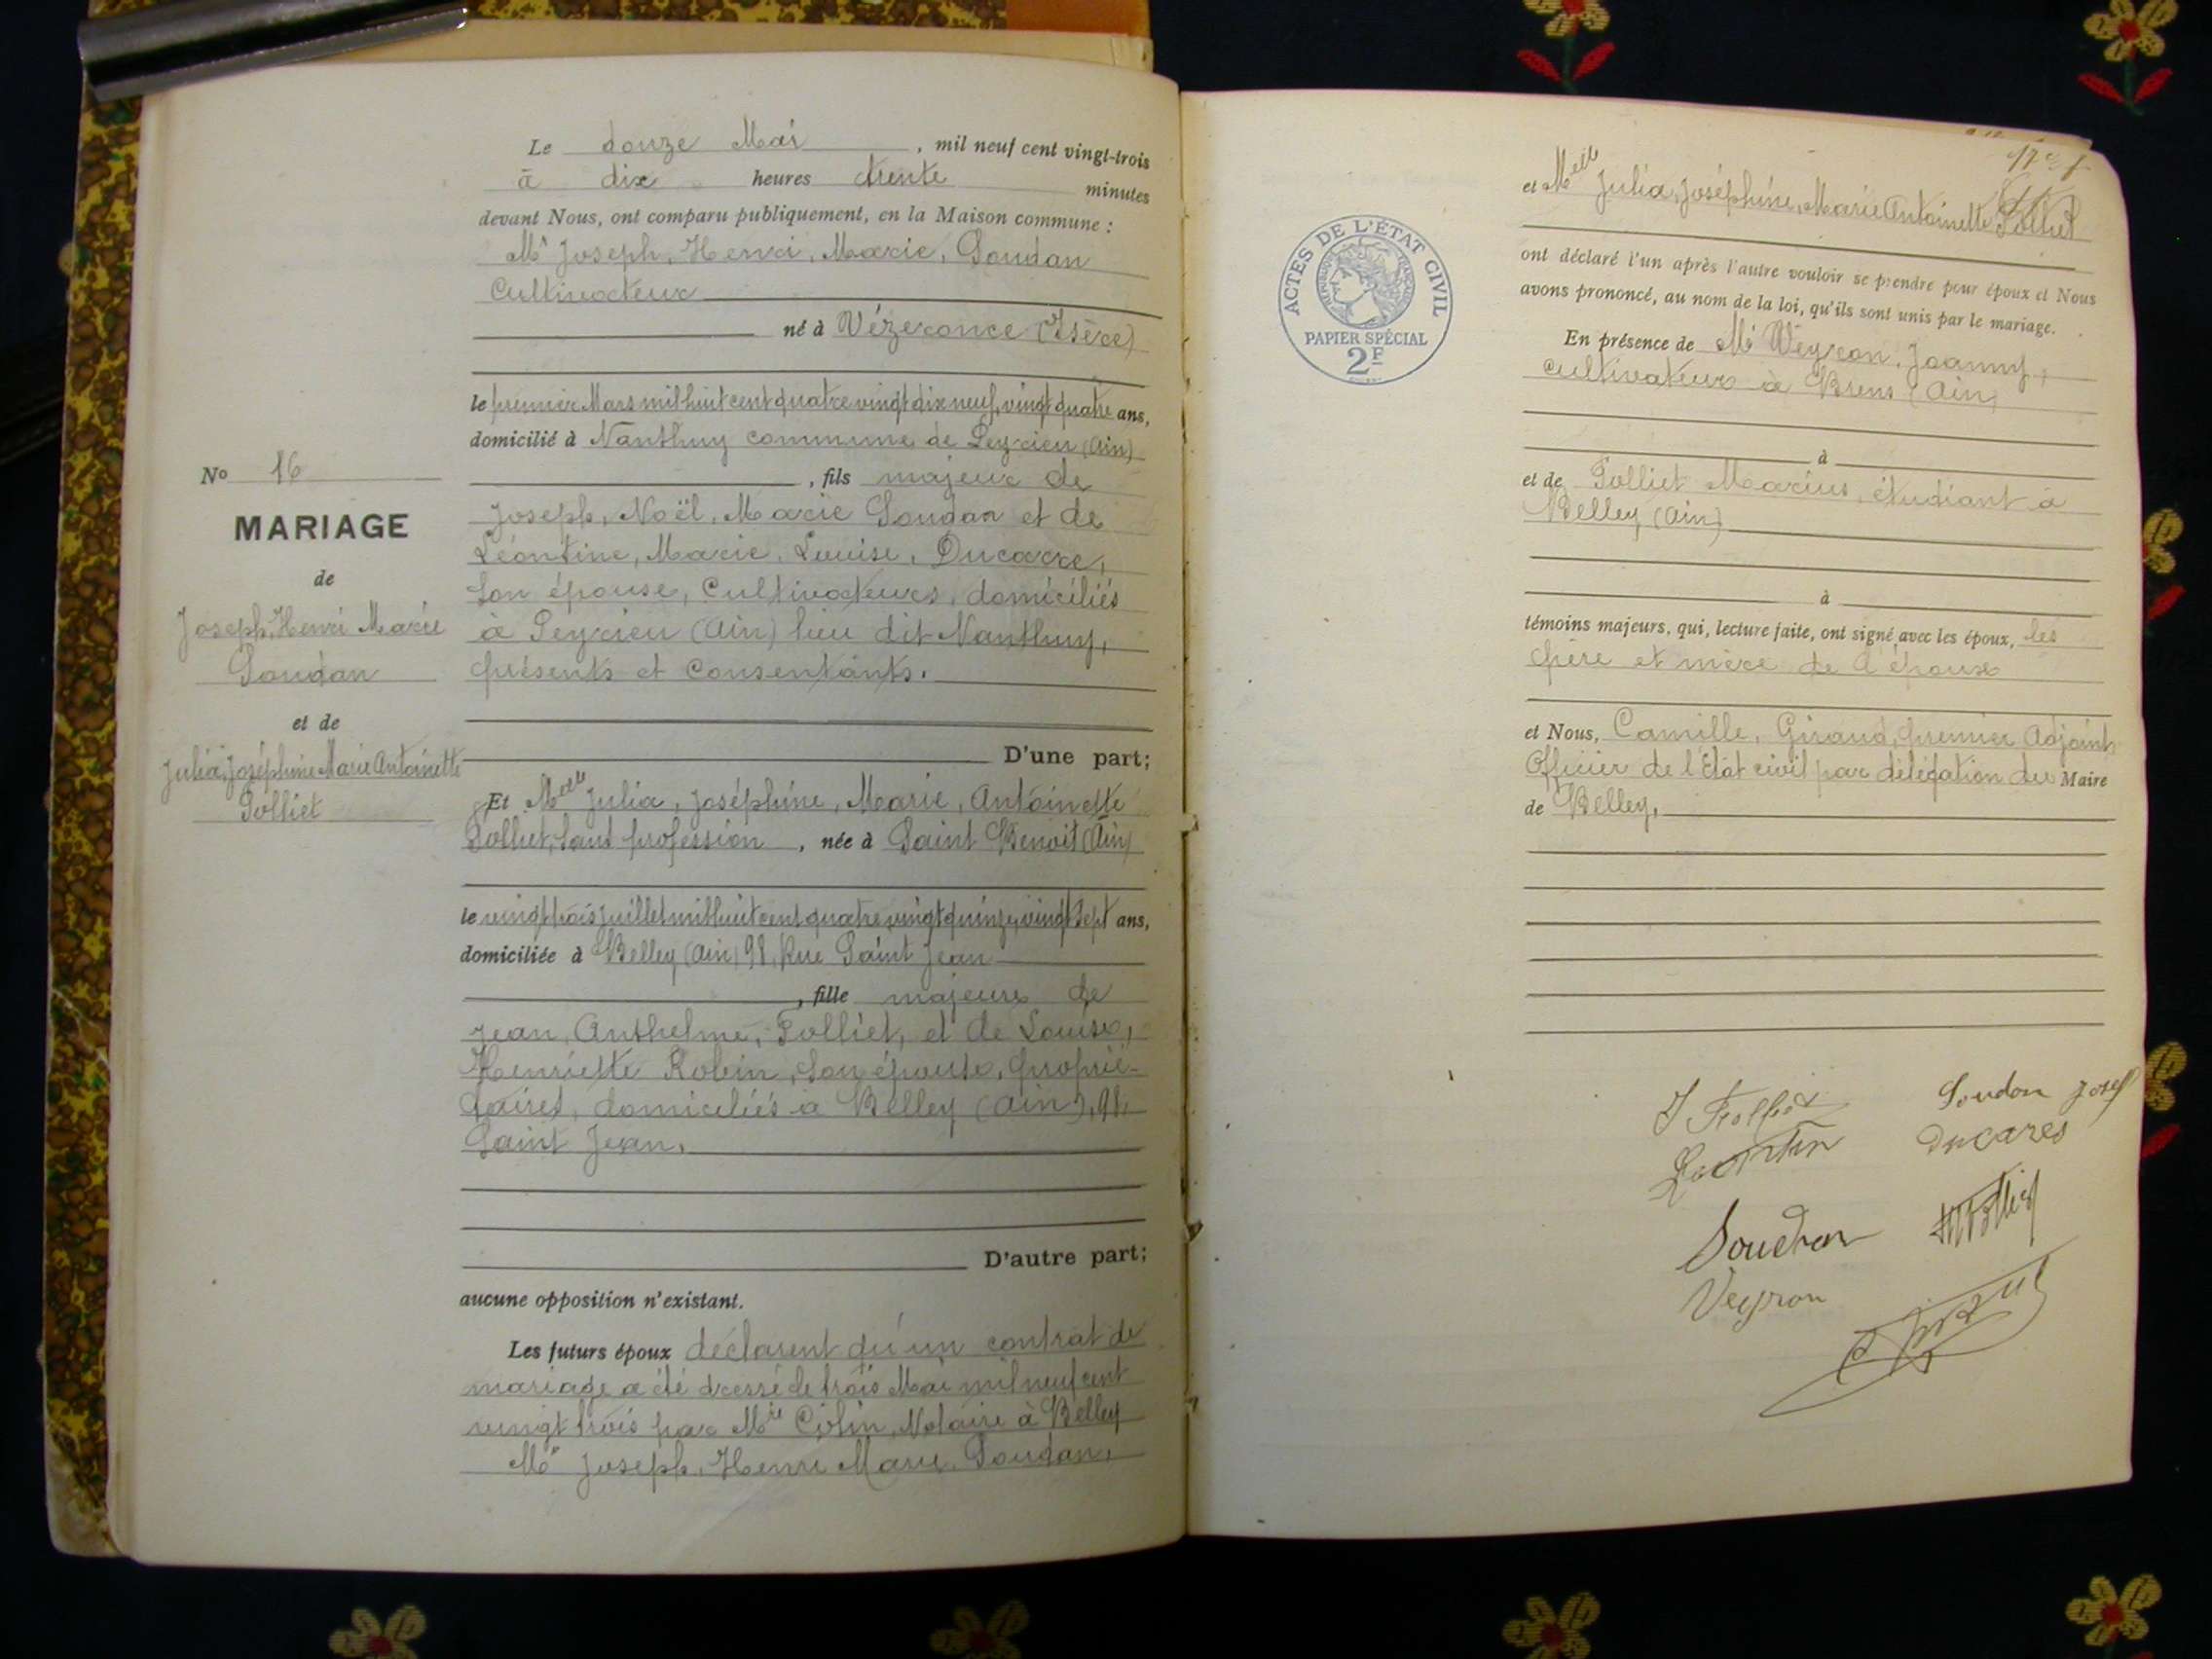 Le douze Mai, mil neuf cent vingt-trois
à dix heures trente minutes
devant Nous, ont comparu publiquement, en la Maison commune :
Mr Joseph, Henri, Marie, Soudan
Cultivateur
né à Vézeronce (Isère)
le premier Mars mil huit cent quatre vingt dix neuf, vingt quatre ans,
domicilié à Nanthuy commune de Peyrieu (Ain)
, fils majeur de
Joseph, Noël, Marie Soudan et de
Léontine, Marie, Louise, Ducarre,
son épouse, Cultivateurs, domiciliés
à Peyrieu (Ain) lieu dit Nanthuy,
présents et consentants.
D'une part;
No 16
MARIAGE
de
Joseph, Henri Marie
Soudan
et de
Julia, Joséphine Marie Antoinette
Polliet
Et Melle Julia, Joséphine, Marie, Antoinette
Polliet, sans profession, née à Saint Benoit (Ain)
le vingt trois juillet mil huit cent quatre vingt quinze, vingt sept ans,
domiciliée à Belley (Ain) 98, Rue Saint Jean
, fille majeure de
Jean, Anthelme, Polliet, et de Louise,
Henriette Robin, son épouse, proprié-
taires, domiciliés à Belley (Ain), 98,
Saint Jean.
D'autre part;
aucune opposition n'existant.
Les futurs époux déclarent qu'un contrat de
mariage a été dressé le trois Mai mil neuf cent
vingt trois par Mtre Colin, Notaire à Belley
Mr Joseph, Henri Marie Soudan,
17e f
et Melle Julia, Joséphine, Marie Antoinette Polliet
ACTES DE L'ÉTAT CIVIL
RÉPUBLIQUE FRANÇAISE
PAPIER SPÉCIAL
2F
ont déclaré l'un après l'autre vouloir se prendre pour époux et Nous
avons prononcé, au nom de la loi, qu'ils sont unis par le mariage.
En présence de Mr Veyron, Joanny,
cultivateur à Brens (Ain)
à
et de Polliet Marius, étudiant à
Belley (Ain)
à
témoins majeurs, qui, lecture faite, ont signé avec les époux, les
père et mère de l'épouse
et Nous, Camille, Giraud, premier Adjoint
Officier de l'État civil par délégation du Maire
de Belley,
Soudan Josef
Ducares
Soudan
Veyron